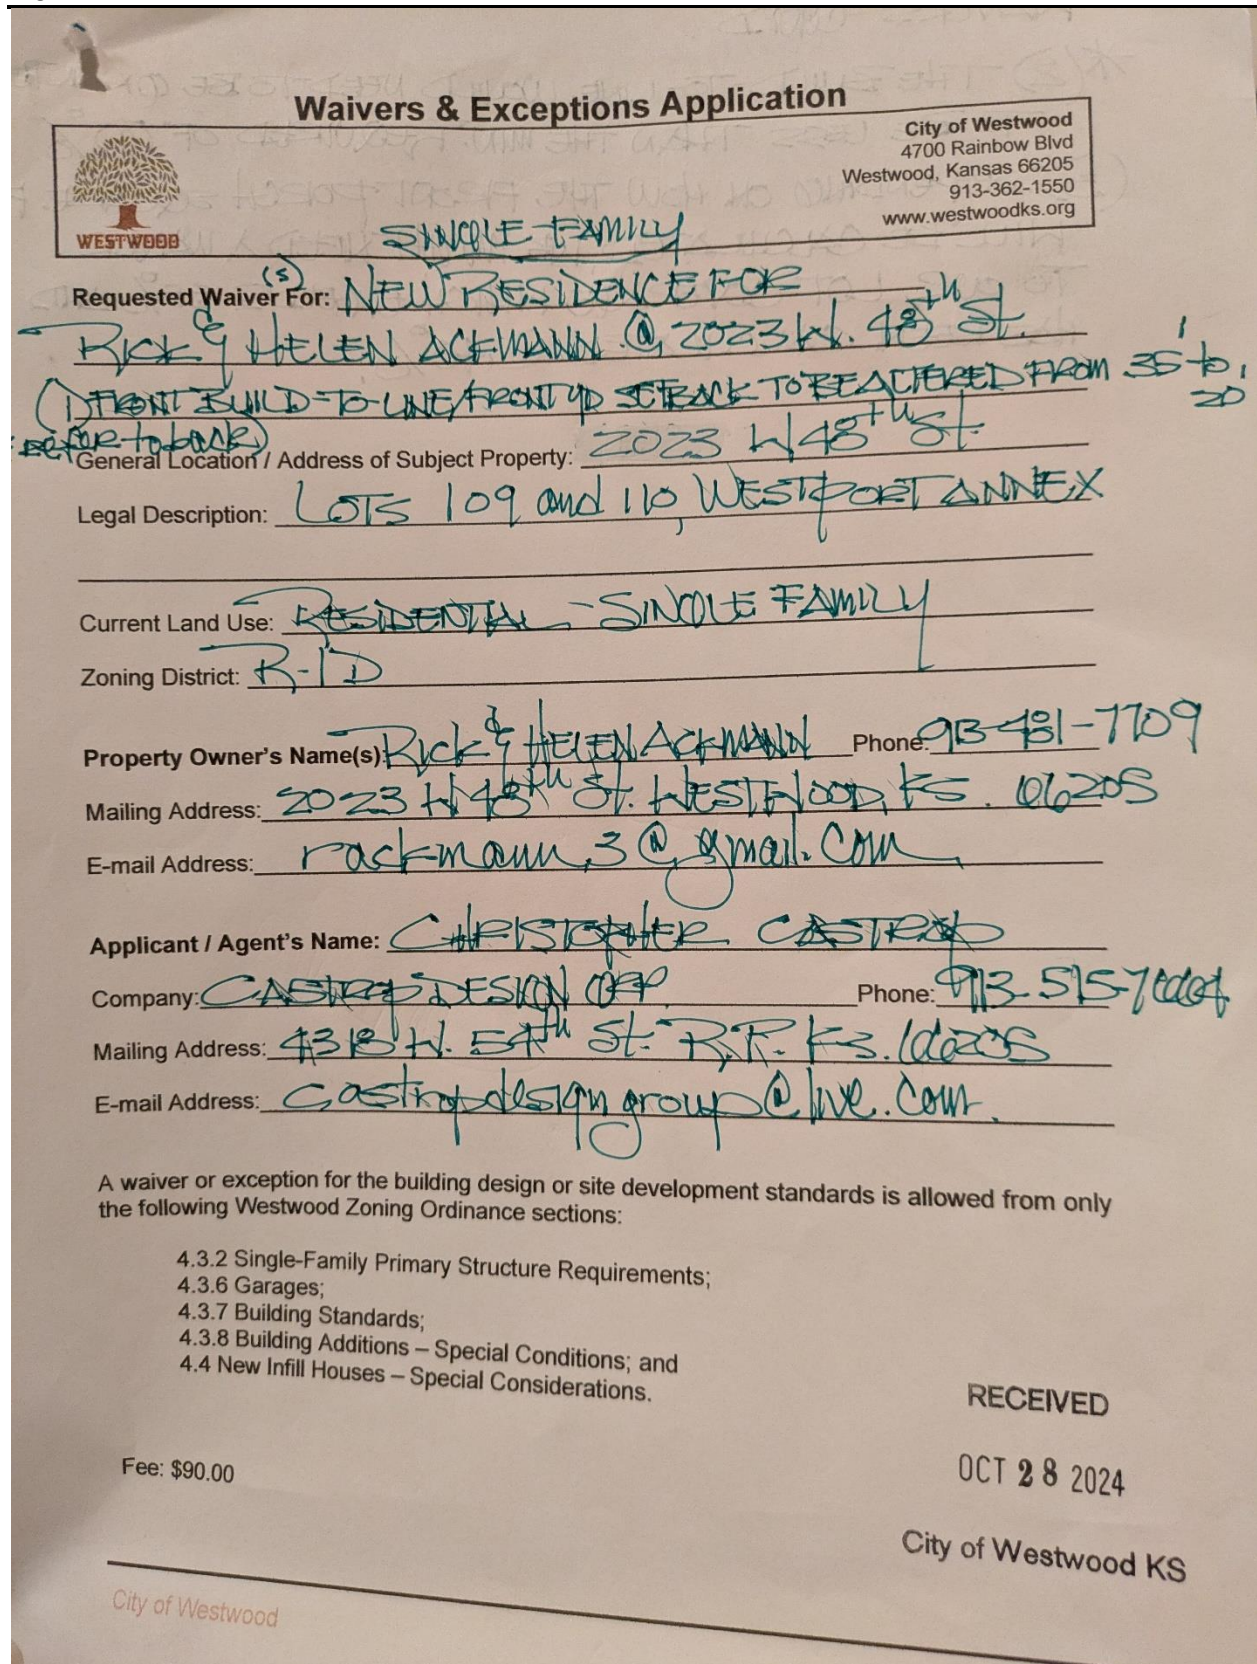 Waivers & Exceptions Application
WESTWOOD
City of Westwood
4700 Rainbow Blvd
Westwood, Kansas 66205
913-362-1550
www.westwoodks.org
SINGLE FAMILY
Requested Waiver(s) For: NEW RESIDENCE FOR
RICK & HELEN ACKMANN @ 2023 W. 48th St.
1) FRONT BUILD-TO-LINE/FRONT YD SETBACK TO BE ALTERED FROM 35' to 20'
(refer to back)
General Location / Address of Subject Property: 2023 W 48th St.
Legal Description: LOTS 109 and 110, WESTPORT ANNEX
Current Land Use: RESIDENTIAL - SINGLE FAMILY
Zoning District: R-1D
Property Owner's Name(s): RICK & HELEN ACKMANN Phone: 913-481-7709
Mailing Address: 2023 W 48th St. WESTWOOD, KS. 66205
E-mail Address: rackmann3@gmail.com
Applicant / Agent's Name: CHRISTOPHER CASTROP
Company: CASTROP DESIGN GRP. Phone: 913-515-
Mailing Address: 4318 W. 54th St. R.P. Ks. 66205
E-mail Address: castropdesigngroup@live.com
A waiver or exception for the building design or site development standards is allowed from only
the following Westwood Zoning Ordinance sections:
4.3.2 Single-Family Primary Structure Requirements;
4.3.6 Garages;
4.3.7 Building Standards;
4.3.8 Building Additions – Special Conditions; and
4.4 New Infill Houses – Special Considerations.
RECEIVED
Fee: $90.00
OCT 28 2024
City of Westwood KS
City of Westwood